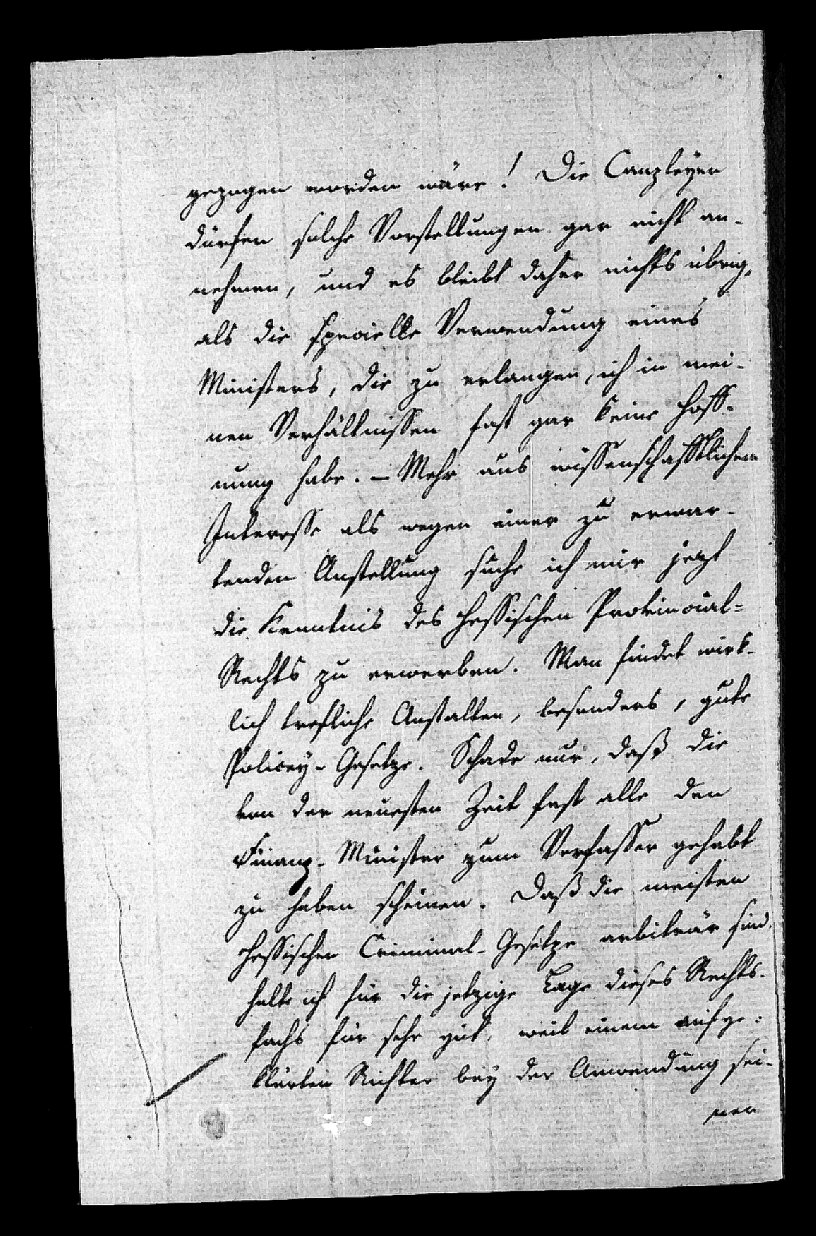 gezogen worden wäre! Die Canzleyen
dürfen solche Vorstellungen gar nicht an-
nehmen, und es bleibt daher nichts übrig,
als die specielle Verwendung eines
Ministers, die zu erlangen, ich in mei-
nen Verhältnissen fast gar keine Hoff-
nung habe. – Mehr aus wissenschafftlichem
Interesse als wegen einer zu erwar-
tenden Anstellung suche ich mir jezt
die Kenntnis des Hessischen Provincial-
Rechts zu erwerben. Man findet wirk-
lich trefliche Anstalten, besonders, gute
Policey-Gesetze. Schade nur, daß die
von der neuesten Zeit fast alle den
Finanz-Minister zum Verfasser gehabt
zu haben scheinen. Daß die meisten
Hessischen Criminal-Gesetze arbiträr sind,
halte ich für die jetzige Lage dieses Rechts-
fachs für sehr gut, weil einem aufge-
klärten Richter bey der Anwendung sei-
nen